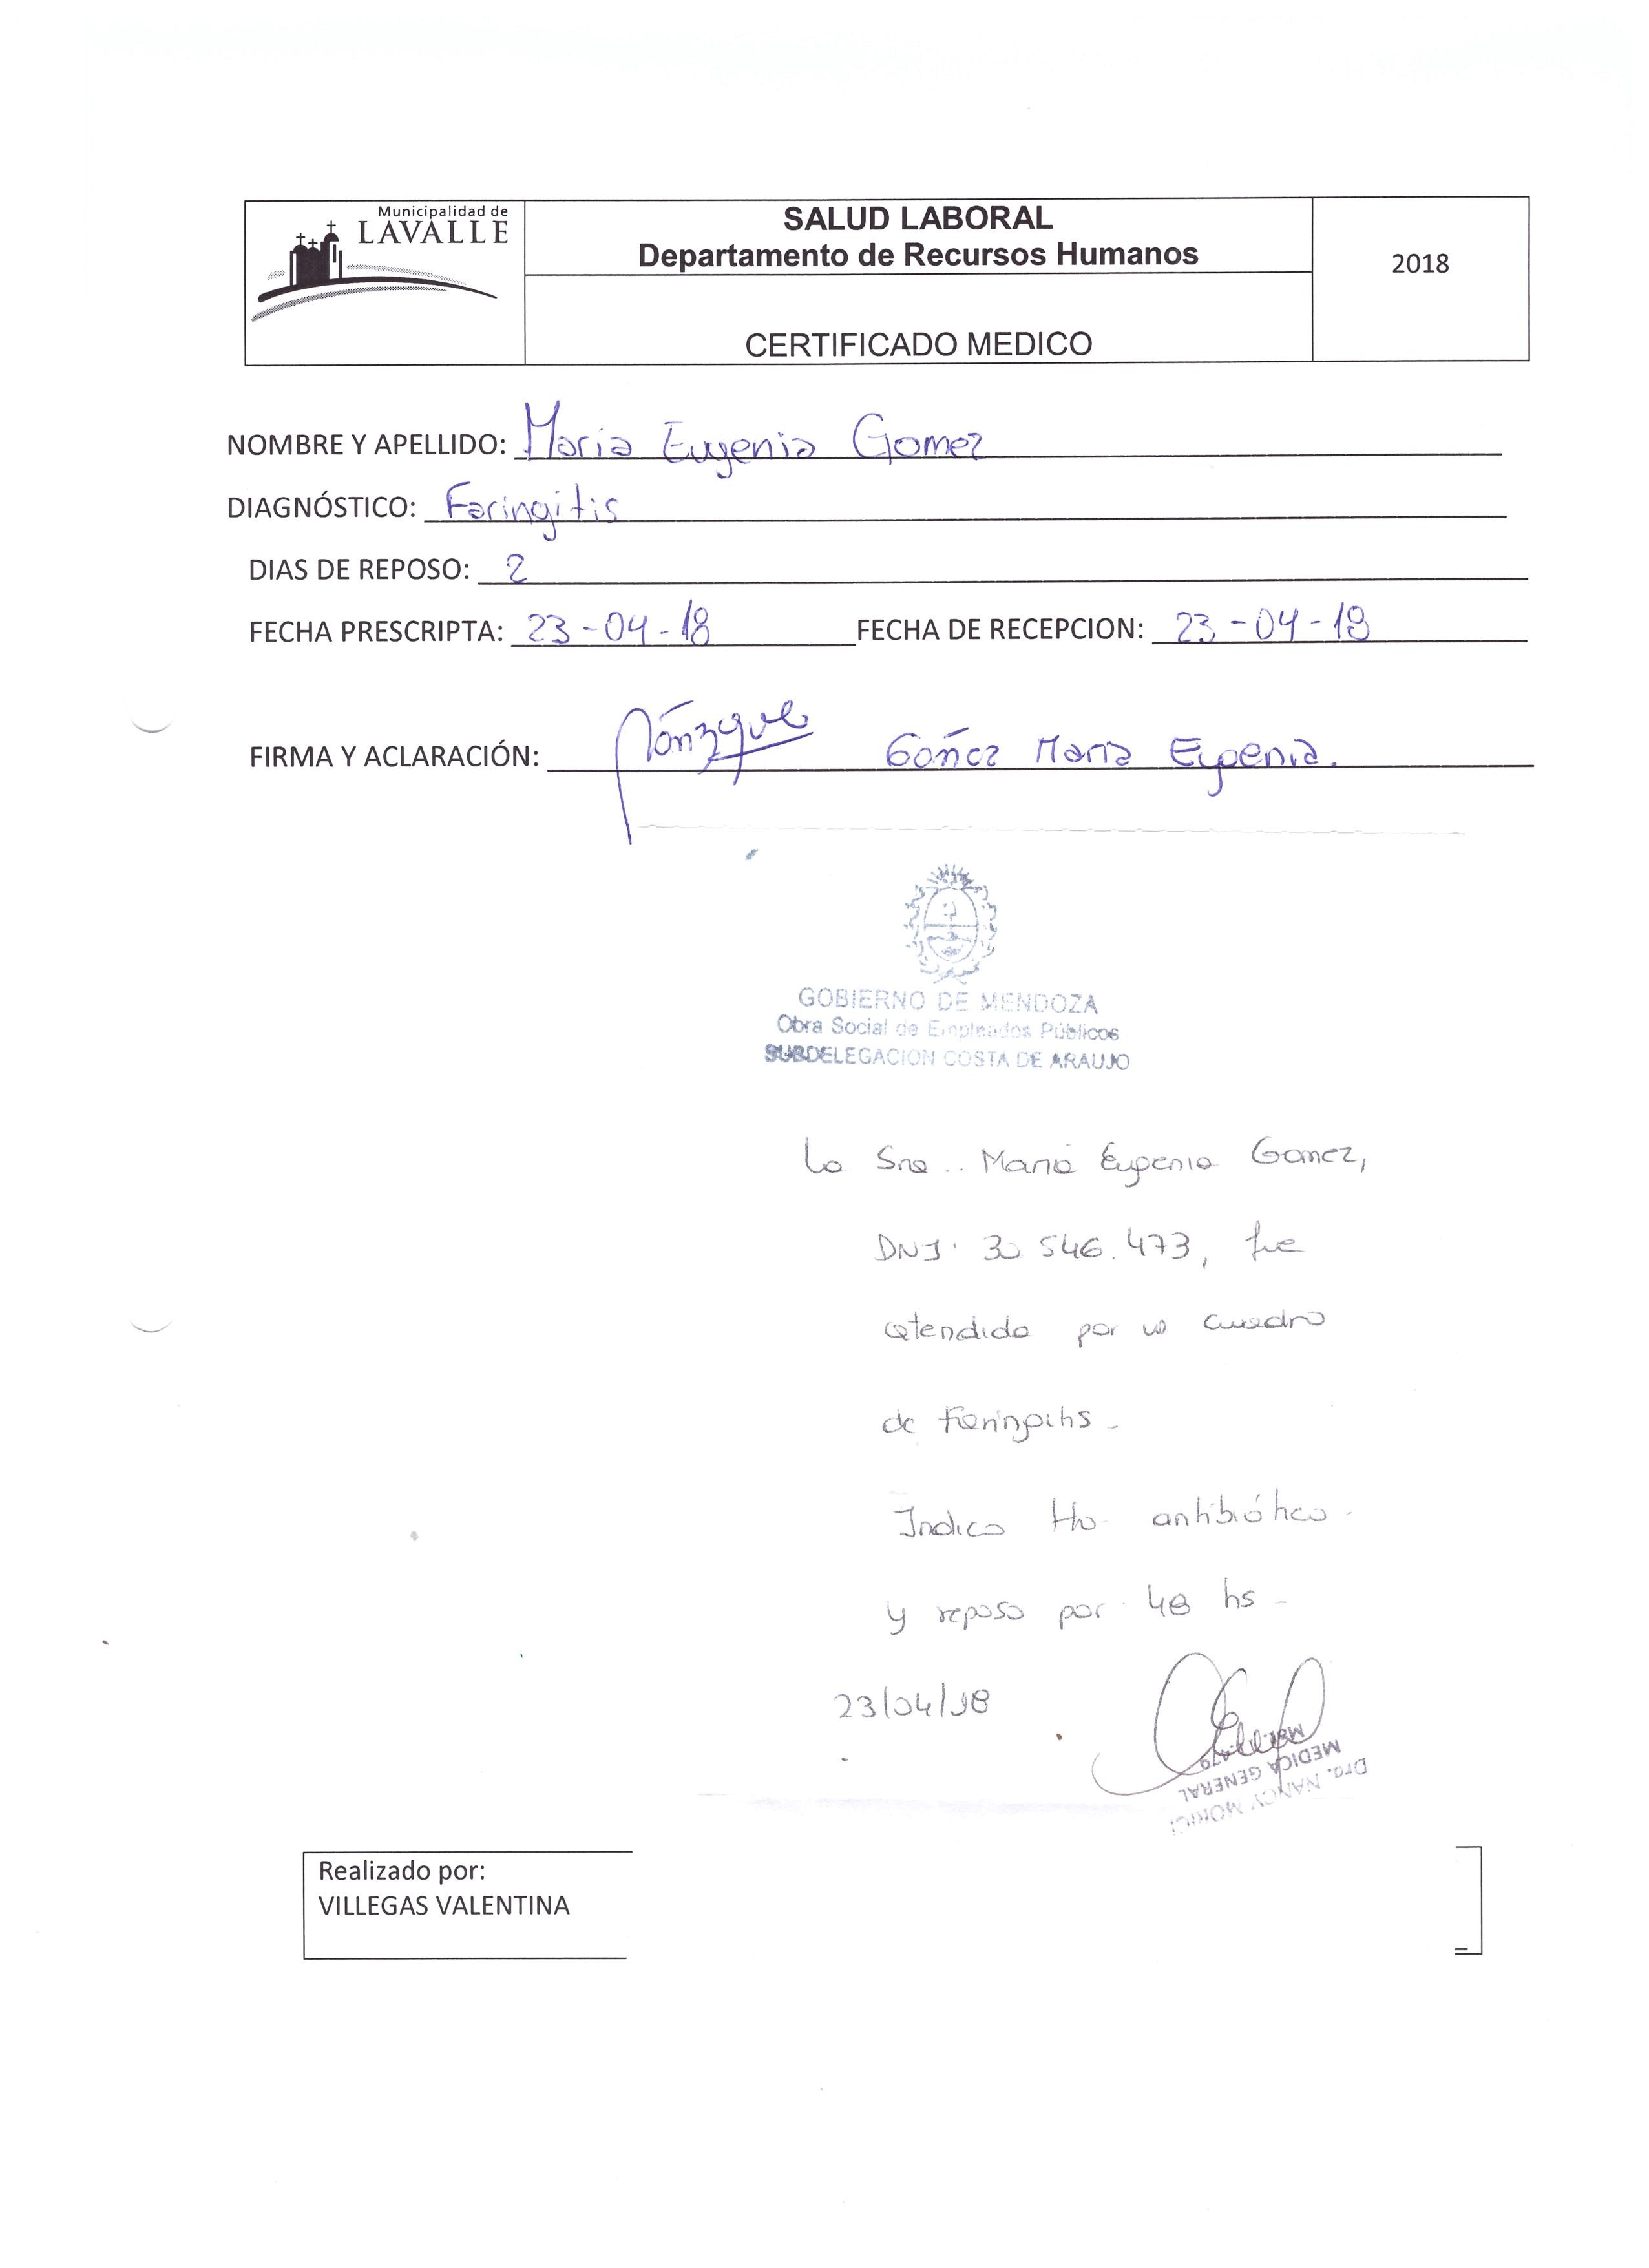 Municipalidad de
LAVALLE
SALUD LABORAL
Departamento de Recursos Humanos
CERTIFICADO MEDICO
2018
NOMBRE Y APELLIDO: Maria Eugenia Gomez
DIAGNÓSTICO: Faringitis
DIAS DE REPOSO: 2
FECHA PRESCRIPTA: 23-04-18 FECHA DE RECEPCION: 23-04-18
FIRMA Y ACLARACIÓN: Gómez Maria Eugenia.
GOBIERNO DE MENDOZA
Obra Social de Empleados Públicos
SUBDELEGACION COSTA DE ARAUJO
La Sra. Maria Eugenia Gomez,
DNI. 30 546.473, fue
atendida por un cuadro
de Faringitis -
Indico tto antibiótico -
y reposo por 48 hs -
23/04/18
Dra. NANCY MORICI
MEDICA GENERAL
Realizado por:
VILLEGAS VALENTINA